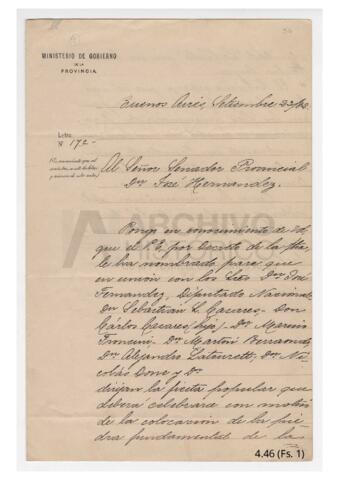 MINISTERIO DE GOBIERNO
DE LA
PROVINCIA
Buenos Aires, Setiembre 23/
Letra
N° 172-
Al Señor Senador Provincial
Dn José Hernandez.
ARCHIVO
Pongo en conocimiento de Vd,
que el P. E. por Decreto de la fha
le ha nombrado para que
en union con los Sres Dn José
Fernandez, Diputado Nacional
Dn Sebastian L. Casares- Don
Cárlos Casares (hijo)- Dn Marcos
Dn Martin Berraondo
Dn Alejandro Dn Ni-
colás y Dn
dirijan la fiesta popular que
deberá celebrarse con motivo
de la colocacion de la pie-
dra fundamental de la
4.46 (Fs. 1)